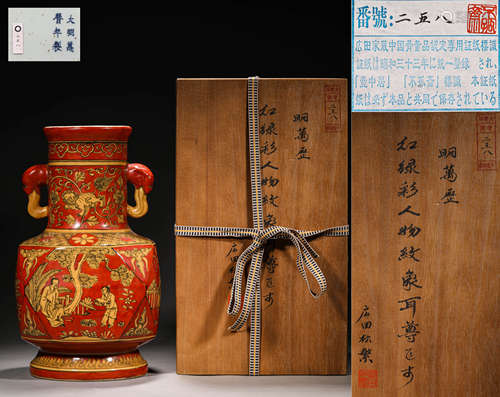 大明萬
曆年製
番號:二五八
広田家蔵中国貴重品認定専用証紙標識
証紙は昭和三十三年に統一登録され、
「壷中居」「不孤斎」標識、本証紙
紙は必ず本品と共同で保存されている
明萬歷
紅绿彩人物紋象耳尊
広田松繁
二五八
明萬歷
紅绿彩人物紋象耳尊
広田松繁